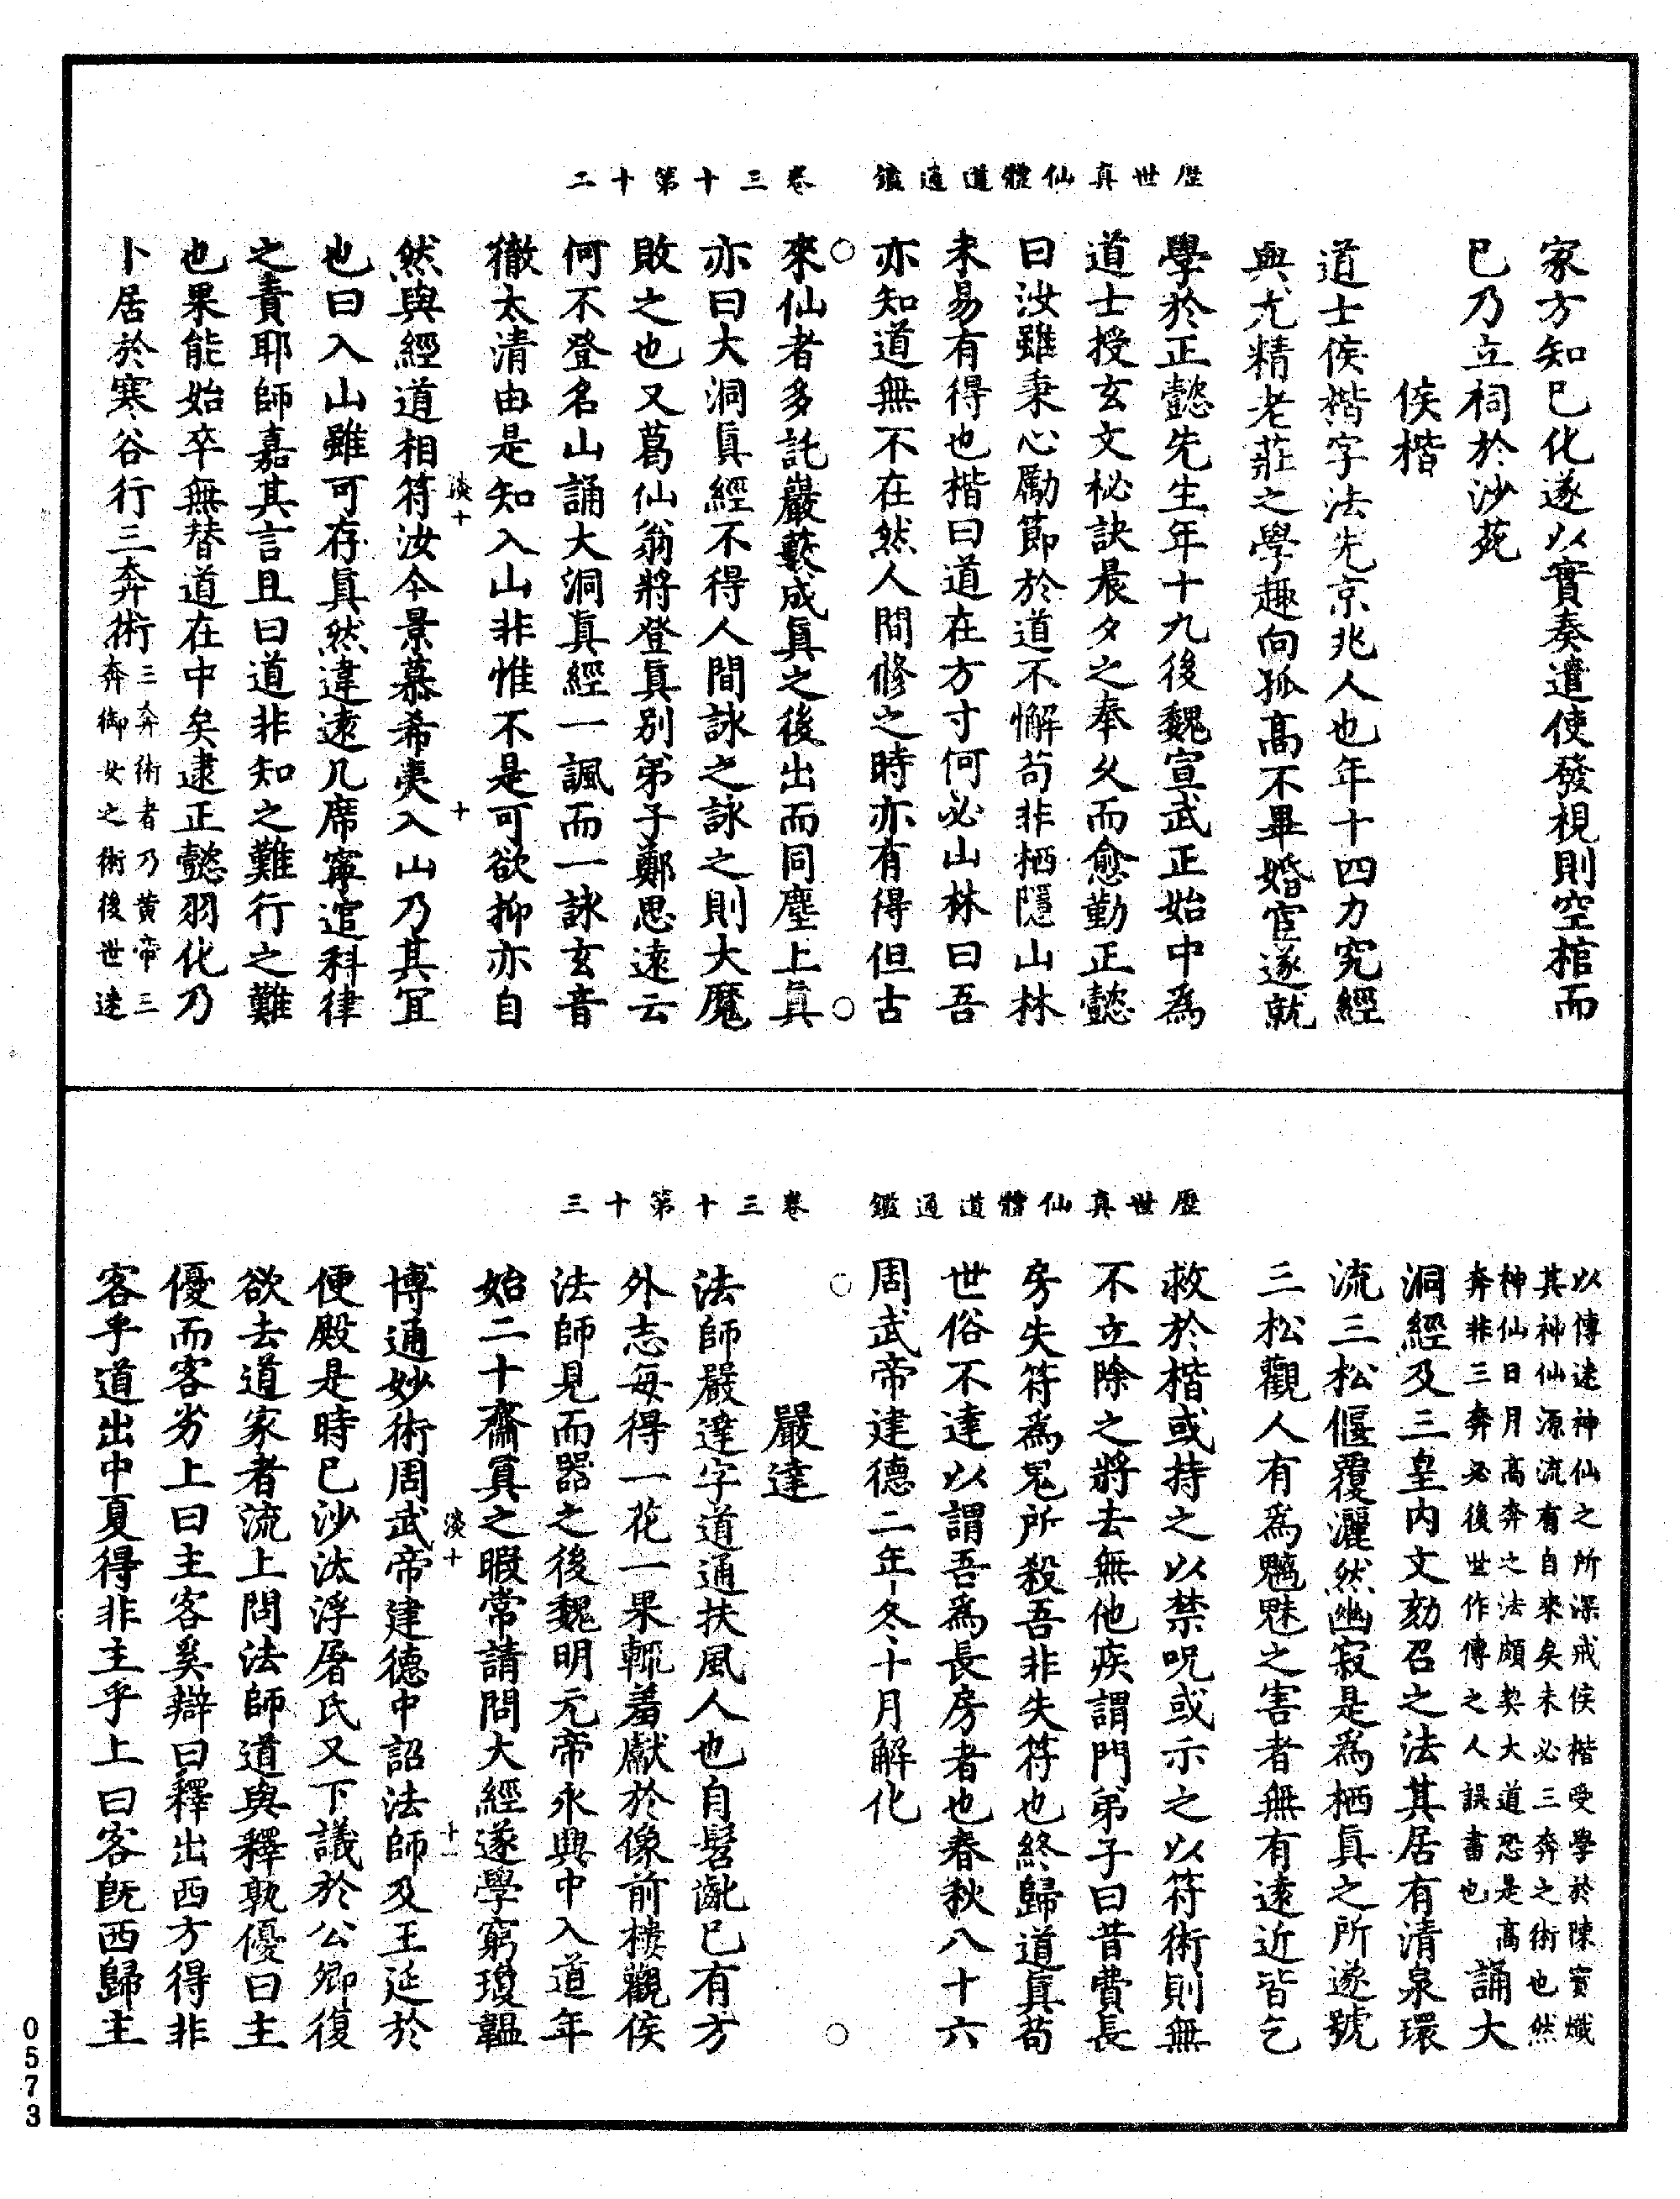 歷世真仙體道通鑑　卷三十第十二
家方知已化遂以實奏遣使發視則空棺而
已乃立祠於沙苑
侯楷
道士侯楷字法先京兆人也年十四力究經
典尤精老莊之學趣向孤高不畢婚宦遂就
學於正懿先生年十九後魏宣武正始中為
道士授玄文祕訣晨夕之奉久而愈勤正懿
曰汝雖秉心勵節於道不懈苟非栖隱山林
未易有得也楷曰道在方寸何必山林曰吾
亦知道無不在然人間修之時亦有得但古
來仙者多託巖藪成真之後出而同塵上真
亦曰大洞真經不得人間詠之詠之則大魔
敗之也又葛仙翁將登真別弟子鄭思遠云
何不登名山誦大洞真經一諷而一詠玄音
徹太清由是知入山非惟不是可欲抑亦自
淡十　十
然與經道相符汝今景慕希夷入山乃其宜
也曰入山雖可存真然違遠几席寧逭科律
之責耶師嘉其言且曰道非知之難行之難
也果能始卒無替道在中矣逮正懿羽化乃
卜居於寒谷行三奔術三奔術者乃黃帝三
奔御女之術後世遠
歷世真仙體道通鑑　卷三十第十三
以傳達神仙之所深戒侯楷受學於陳寶熾
其神仙源流有自來矣未必三奔之術也然
神仙日月高奔之法頗契大道恐是高
奔非三奔必後世作傳之人誤書也誦大
洞經及三皇內文劾召之法其居有清泉環
流三松偃覆灑然幽寂是為栖真之所遂號
三松觀人有為魑魅之害者無有遠近皆乞
救於楷或持之以禁呪或示之以符術則無
不立除之將去無他疾謂門弟子曰昔費長
房失符為鬼所殺吾非失符也終歸道真苟
世俗不達以謂吾為長房者也春秋八十六
周武帝建德二年冬十月解化
嚴達
法師嚴達字道通扶風人也自髫齔已有方
外志每得一花一果輒羞獻於像前樓觀侯
法師見而器之後魏明元帝永興中入道年
始二十齋冥之暇常請問大經遂學窮瓊韞
淡十　十一
博通妙術周武帝建德中詔法師及王延於
便殿是時已沙汰浮屠氏又下議於公卿復
欲去道家者流上問法師道與釋孰優曰主
優而客劣上曰主客奚辯曰釋出西方得非
客乎道出中夏得非主乎上曰客既西歸主
0573